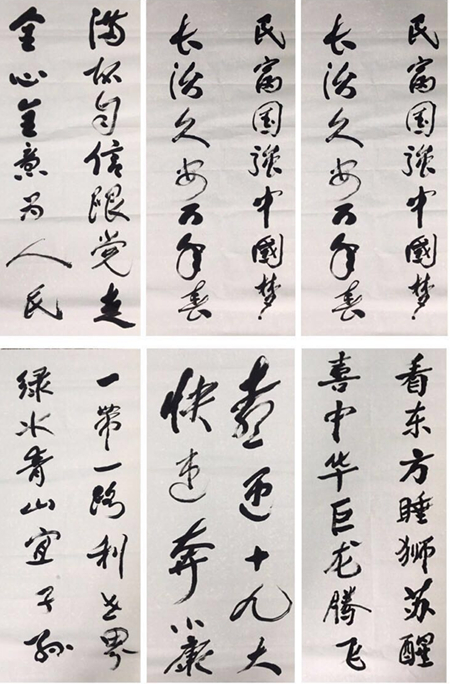 满怀自信跟党走
全心全意为人民
民富国强中國梦
长治久安万年春
民富国强中國梦
长治久安万年春
一带一路利世界
绿水青山宜子孙
喜迎十九大
快速奔小康
看东方睡狮苏醒
喜中华巨龙腾飞